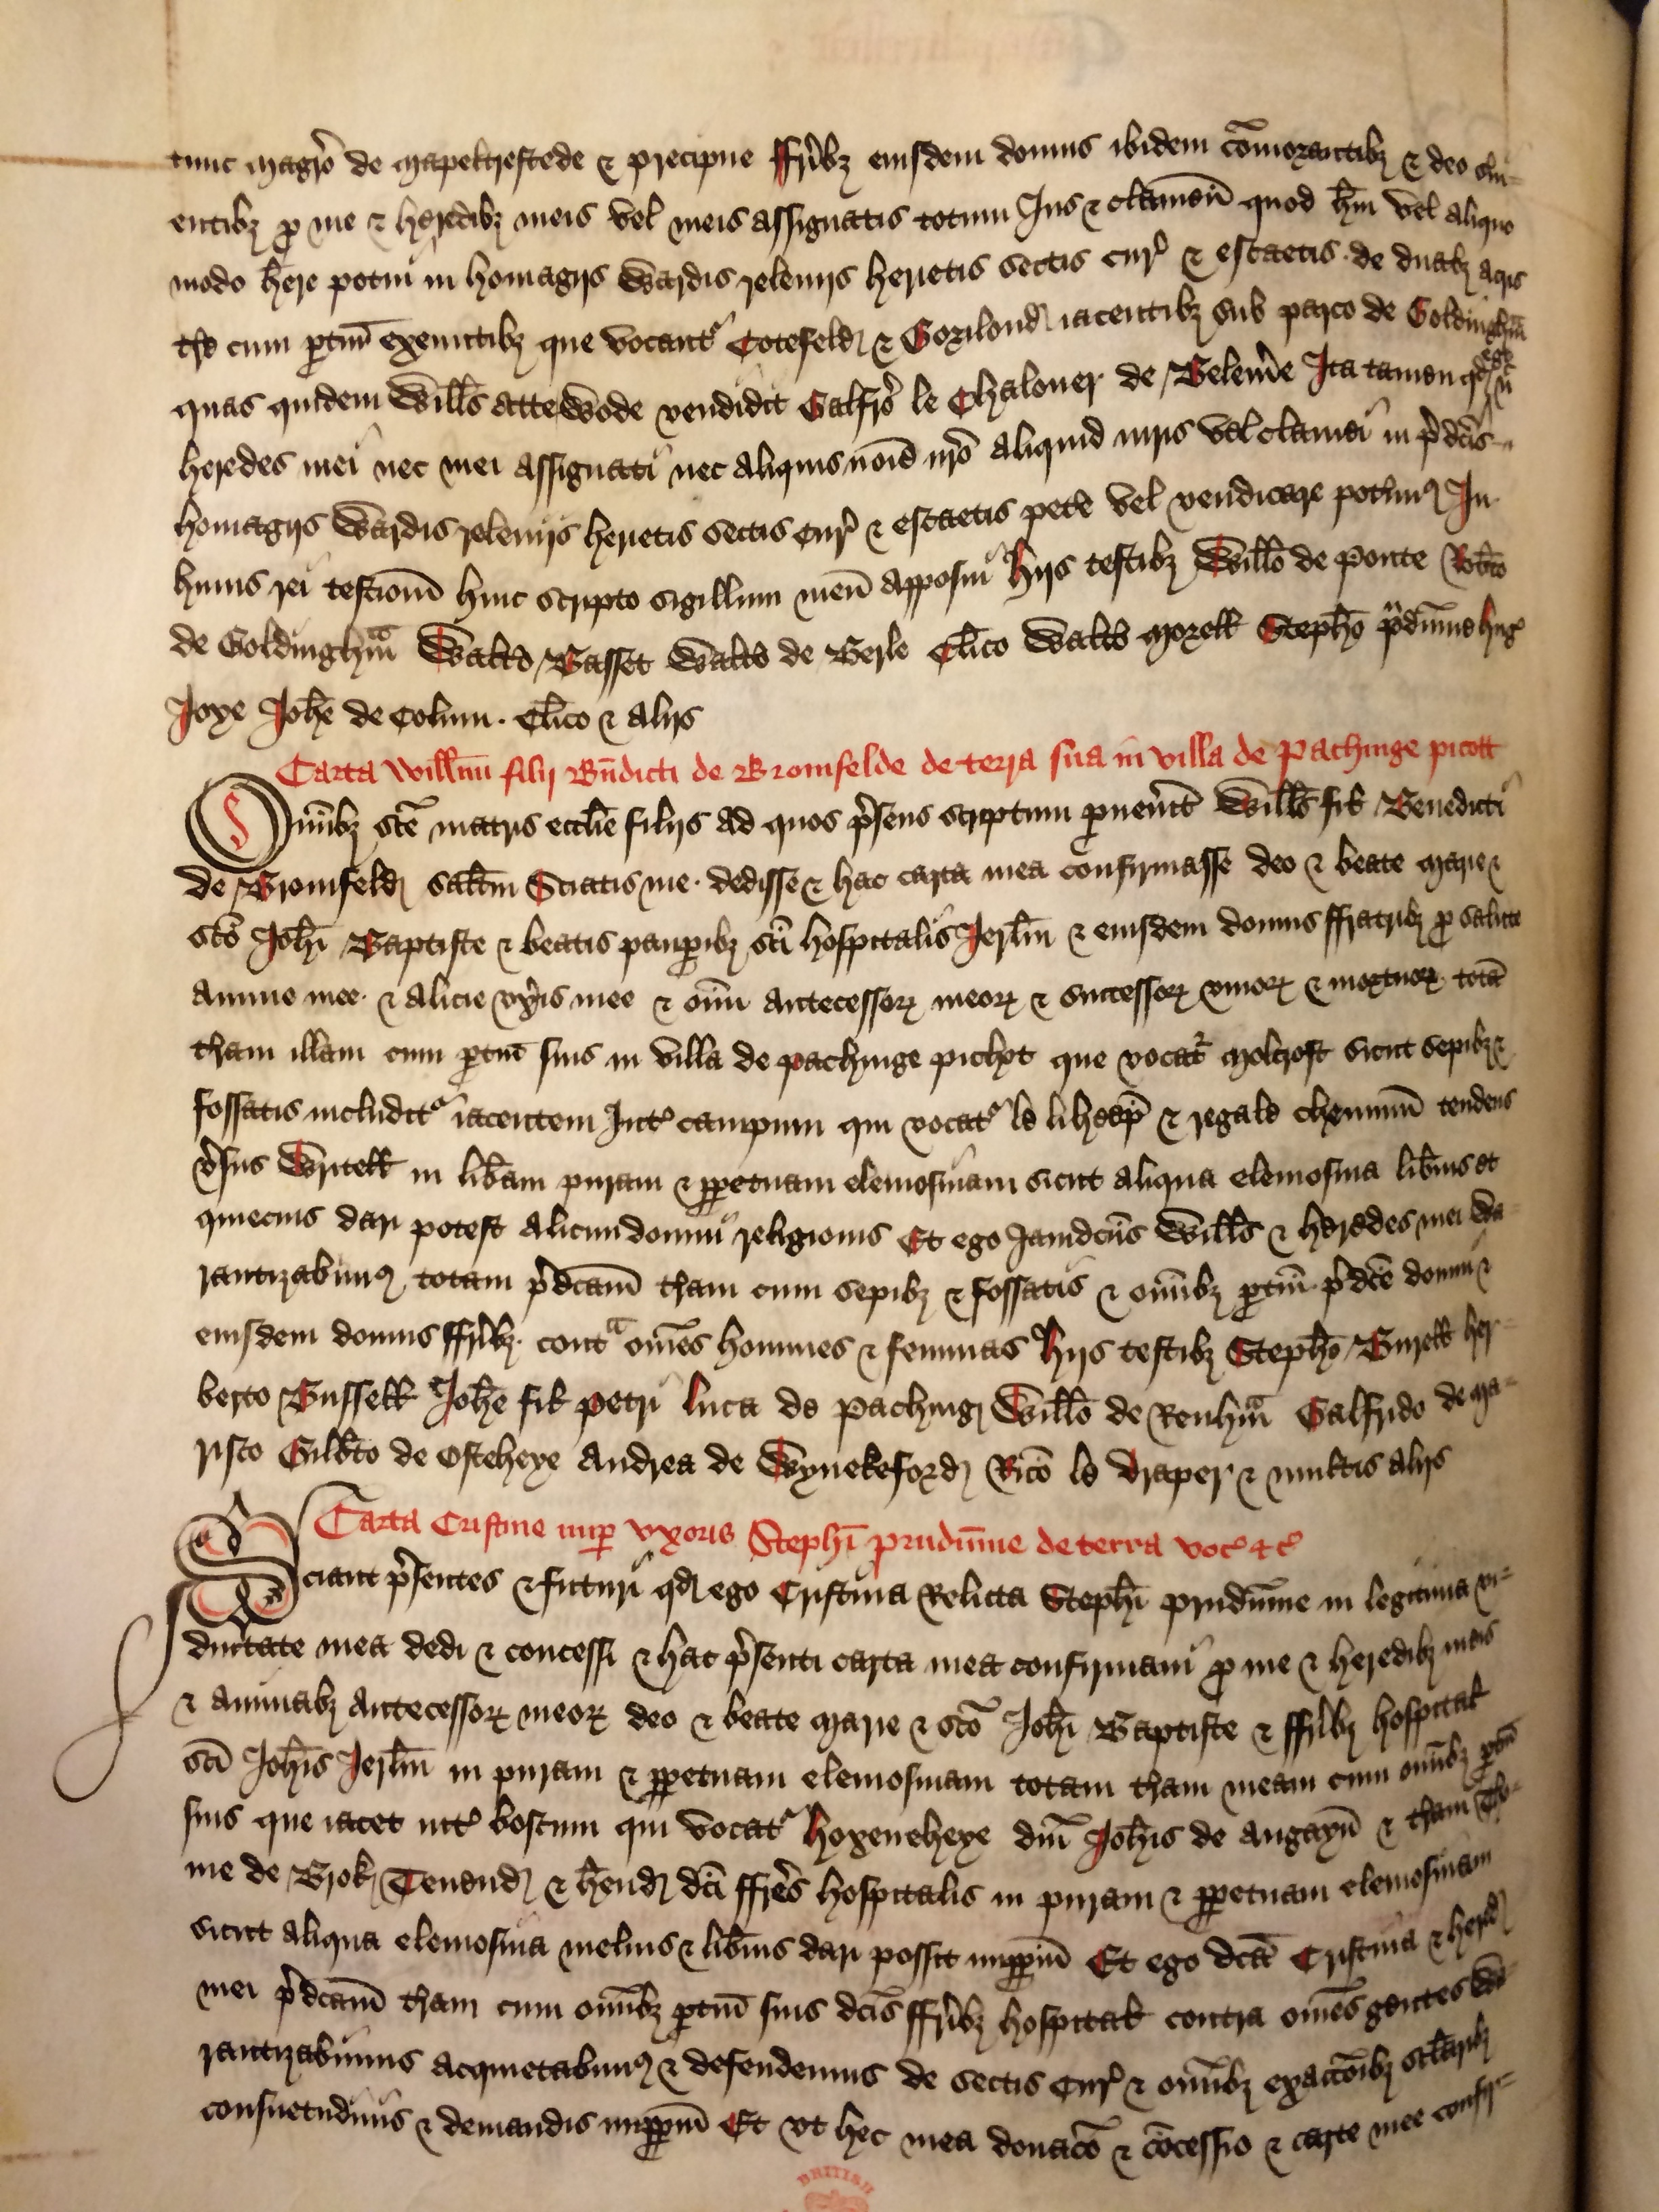 tunc Magr̃o de Mapeltrestede & precipue ffr̃ibȝ eiusdem domus ibidem cõmorantibȝ & deo s̃ui-
entibȝ ꝑ me & heredibȝ meis vel meis assignatis totum Jus & clameũ quod h̃ui vel aliquo
modo h̃ere potui in homagijs Wardis releuijs herietis sectis cur̃ & escaetis de duabȝ acris
tr̃e cum ꝑtiñ exeuntibȝ que vocant̃ Cotefeld & Gorilond iacentibȝ sub parco de Goldinghã
quas quidem Wills̃ atteWode vendidit Galfr̃o le Chaloner de Belem̃e Ita tamen qd ego ñ
heredes mei nec mei assignati nec aliquis noĩe nr̃o aliquid iuris vel clamei in p̃dc̃is
homagijs Wardis releuijs herietis sectis cur̃ & escaetis pet̃e vel vendicare pot̃imꝰ In
huius rei testioĩu huic scripto sigillum meũ apposui Hijs testibȝ Willo̅ de Ponte Rob̃to
de Goldinghã Walt̃o Basset Walt̃o de Berle Cl̃ico Walt̃o Morell Steph̃o p̃udũme Hug̃
Joye Joh̃e de Colum. Cl̃ico & alijs
Carta Willm̃i filij Bñdicti de Bromfelde de terra sua in villa de Pachinge picott
Om̃ibȝ stẽ matris ecclie filijs ad quos p̃sens scriptum ꝑuen̾it Wills̃ fil Benedicti
de Bromfeld salt̃m Sciatis me dedisse & hac carta mea confirmasse deo & beate Marie &
stõ Joh̃i Baptiste & beatis pauꝑibȝ sc̃i hospitalis Jerl̃m & eiusdem domus ffratribȝ ꝑ salute
anime mee & alicie vx̃is mee & oĩm antecessoꝝ meoꝝ & successoꝝ viuoꝝ & mortuoꝝ totã
t̾ram illam cum ꝑtiñ suis in villa de pachinge pichot que vocat̃ Molcroft sicut sepibȝ &
fossatis includit̃ iacentem Int̃ campum qui vocat̃ le liheap̃ & regale cheminũ tendens
v̾sus Writell in lib̃am puram & ꝑpetuam elemosinam sicut aliqua elemosina lib̃ius et
quiecius dari potest alicui domui religionis Et ego Jamdc̃us Wills̃ & heredes mei Wa-
rantizabimꝰ totam p̃dcam̃ t̾ram cum sepibȝ & fossatis & om̃ibȝ ꝑtiñ p̃dc̃e domui &
eiusdem domus ffr̃ibȝ cont̃ om̃es homines & feminas Hijs testibȝ Steph̃o Burell her-
berto Bussell Joh̃e fil Petri Luca de Paching Willo̅ de Renhm̃ Galfrido de Ma-
risco Gilb̃to de Osteheye Andrea de Wynekeford Ric̃o le draper & multis alijs
Carta Cristine nuꝑ vxoris Steph̃i prudũme de terra voc̾ &c̾
Sciant p̃sentes & futuri qd ego Cristina Relicta Steph̃i prudũme in legitima vi-
duitate mea dedi & concessi & hac p̃senti carta mea confirmaui ꝑ me & heredibȝ meis
& animabȝ antecessoꝝ meoꝝ deo & beate Marie & stõ Joh̃i Baptiste & ffr̃ibȝ hospital
sc̃i Joh̃is Jerl̃m in puram & ꝑpetuam elemosinam totam t̾ram meam cum om̃ibȝ ꝑtiñ
suis que iacet int̃ boscum qui vocat̃ Hoxeneheye dñi Joh̃is de Angayũ & t̾ram Tho-
me de Brok Tenend & h̃end dc̃i ffr̃es hospitalis in puram & ꝑpetuam elemosinam
sicut aliqua elemosina melius & lib̃ius dari possit inꝑpm̃ Et ego dcã Cristina & hered
mei p̃dcam̃ t̾ram cum om̃ibȝ ꝑtiñ suis dc̃is ffr̃ibȝ hospital contra om̃es gentes Wa-
rantizabimus acquietabimꝰ & defendemus de sectis Cur̃ & om̃ibȝ exactõibȝ sc̃laribȝ
consuetudĩis & demandis inꝑpm̃ Et vt hec mea donacõ & cõcessio & carte mee confir-
BRITISH